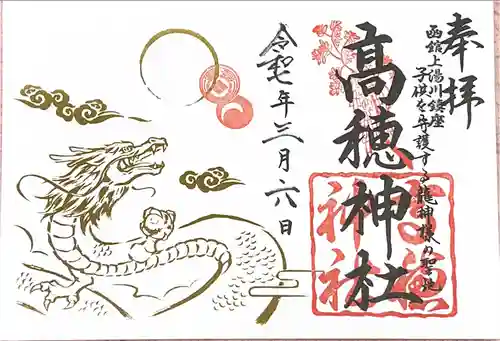 奉拝
函館上湯川鎮座
子供を守護する龍神様の聖地
高穂神社
高穂
神社
令和七年三月六日